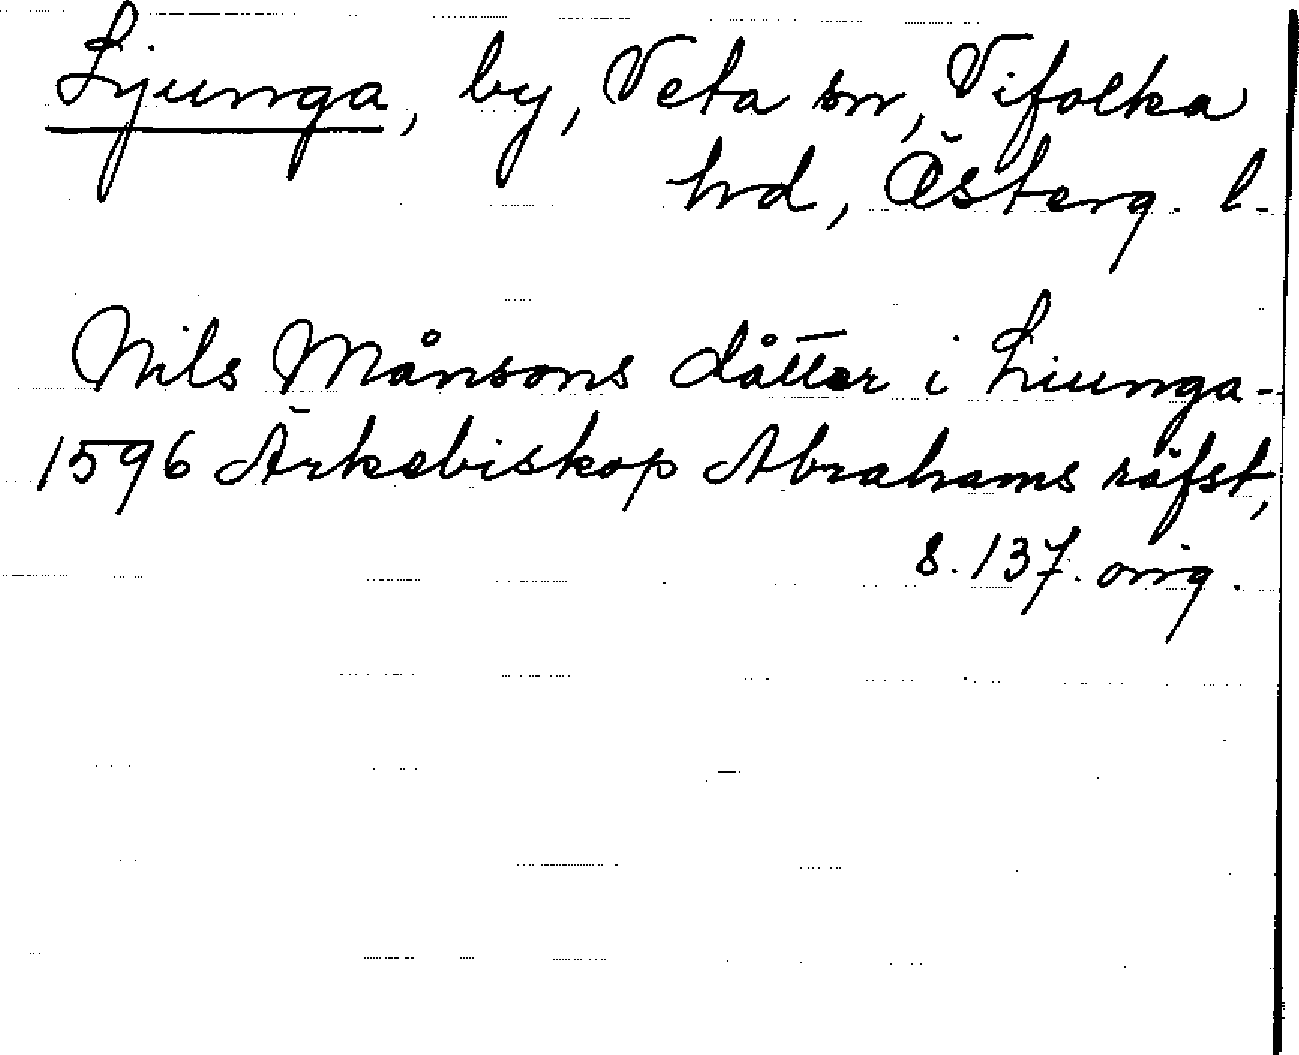 Ljunga, by, Veta sn, Vifolka
hd, Österg. l.
Nils Månsons dåtter i Liunga -
1596 Ärkebiskop Abrahams räfst,
s. 137. orig.